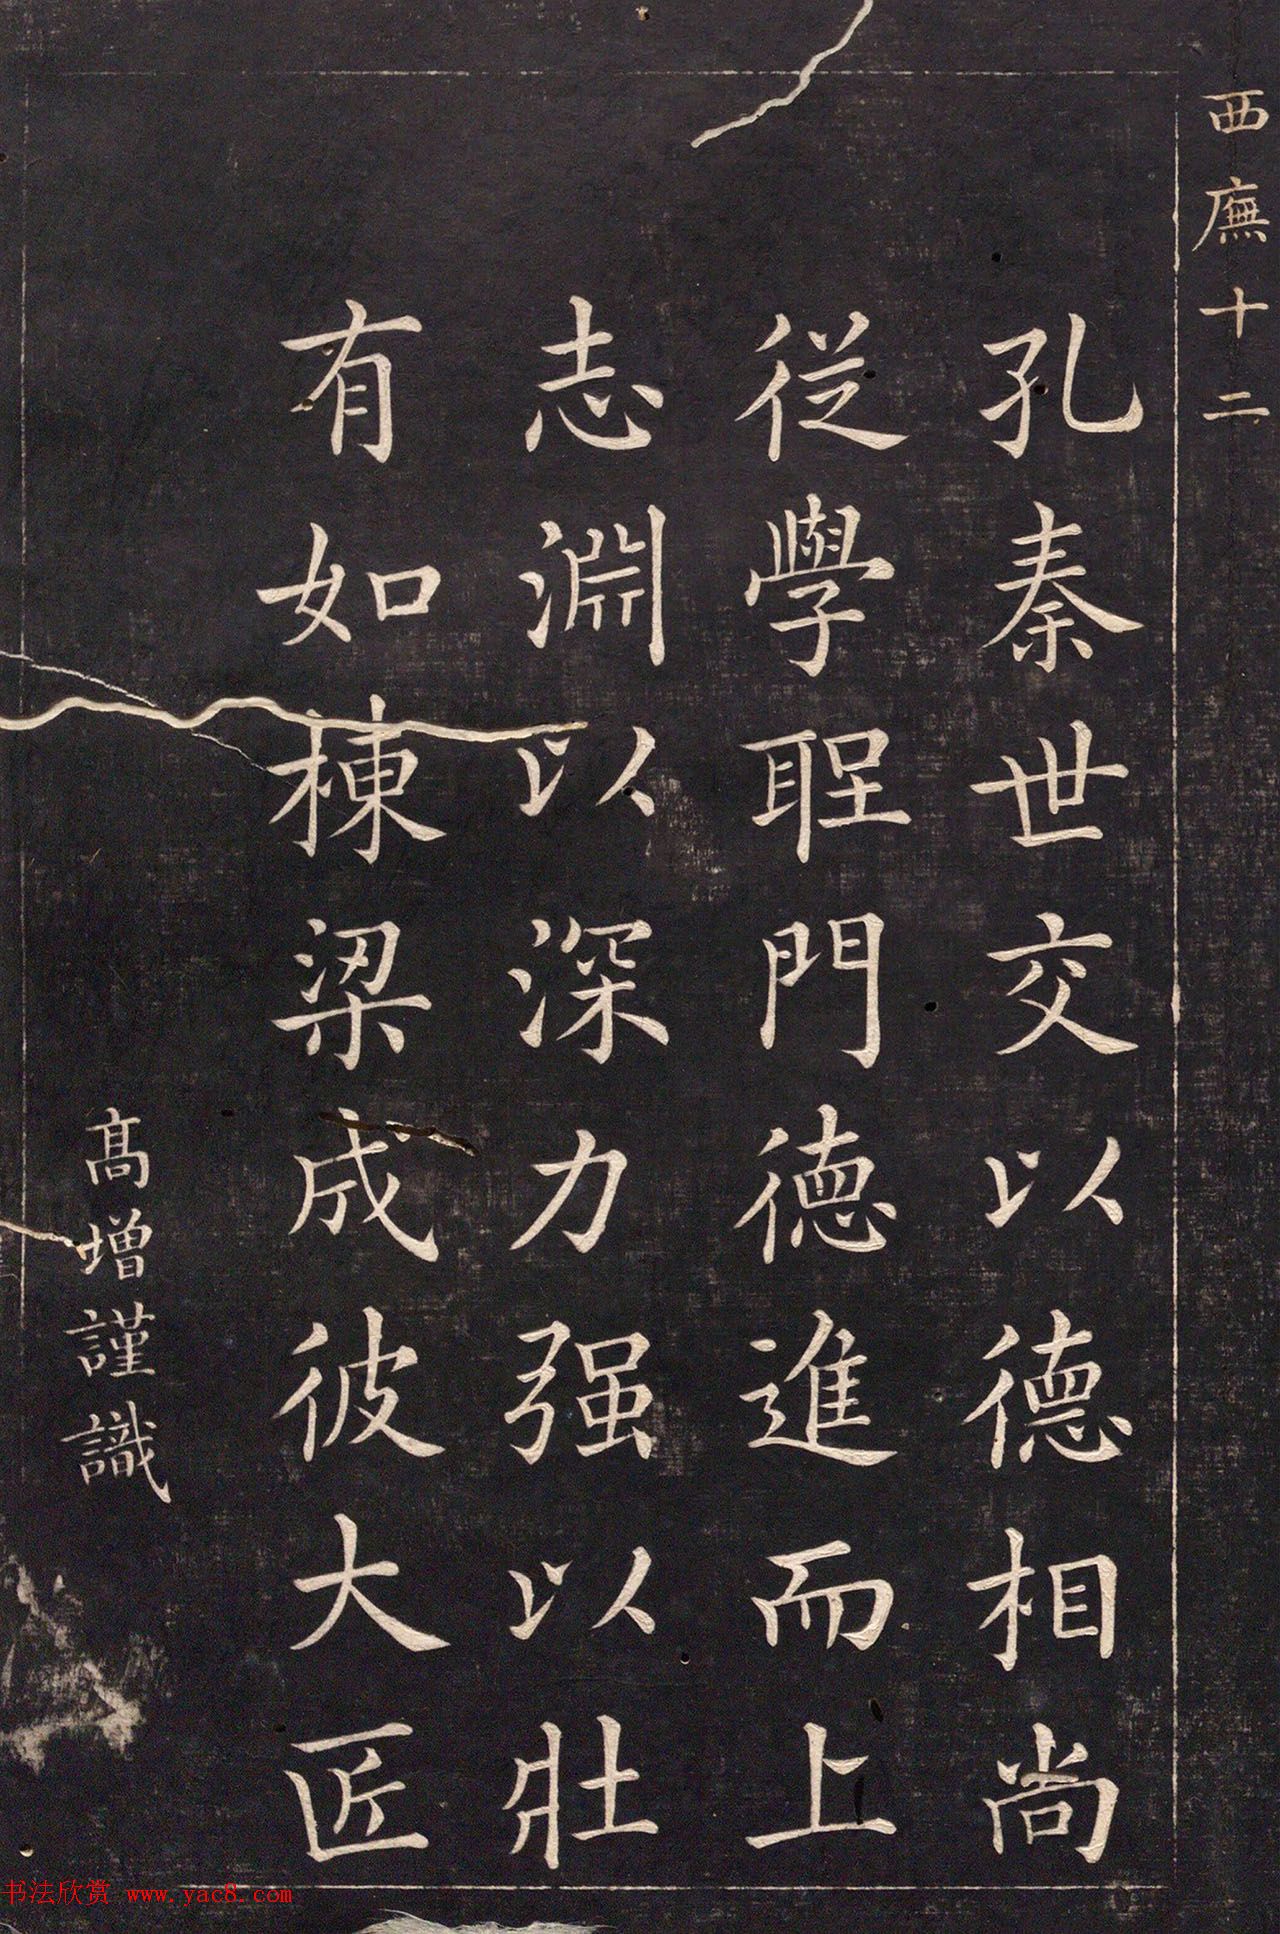 西廡十二
孔秦世交以德相尚
從學聖門德進而上
志淵以深力强以壯
有如棟梁成彼大匠
高增謹識
书法欣赏 www.yac8.com